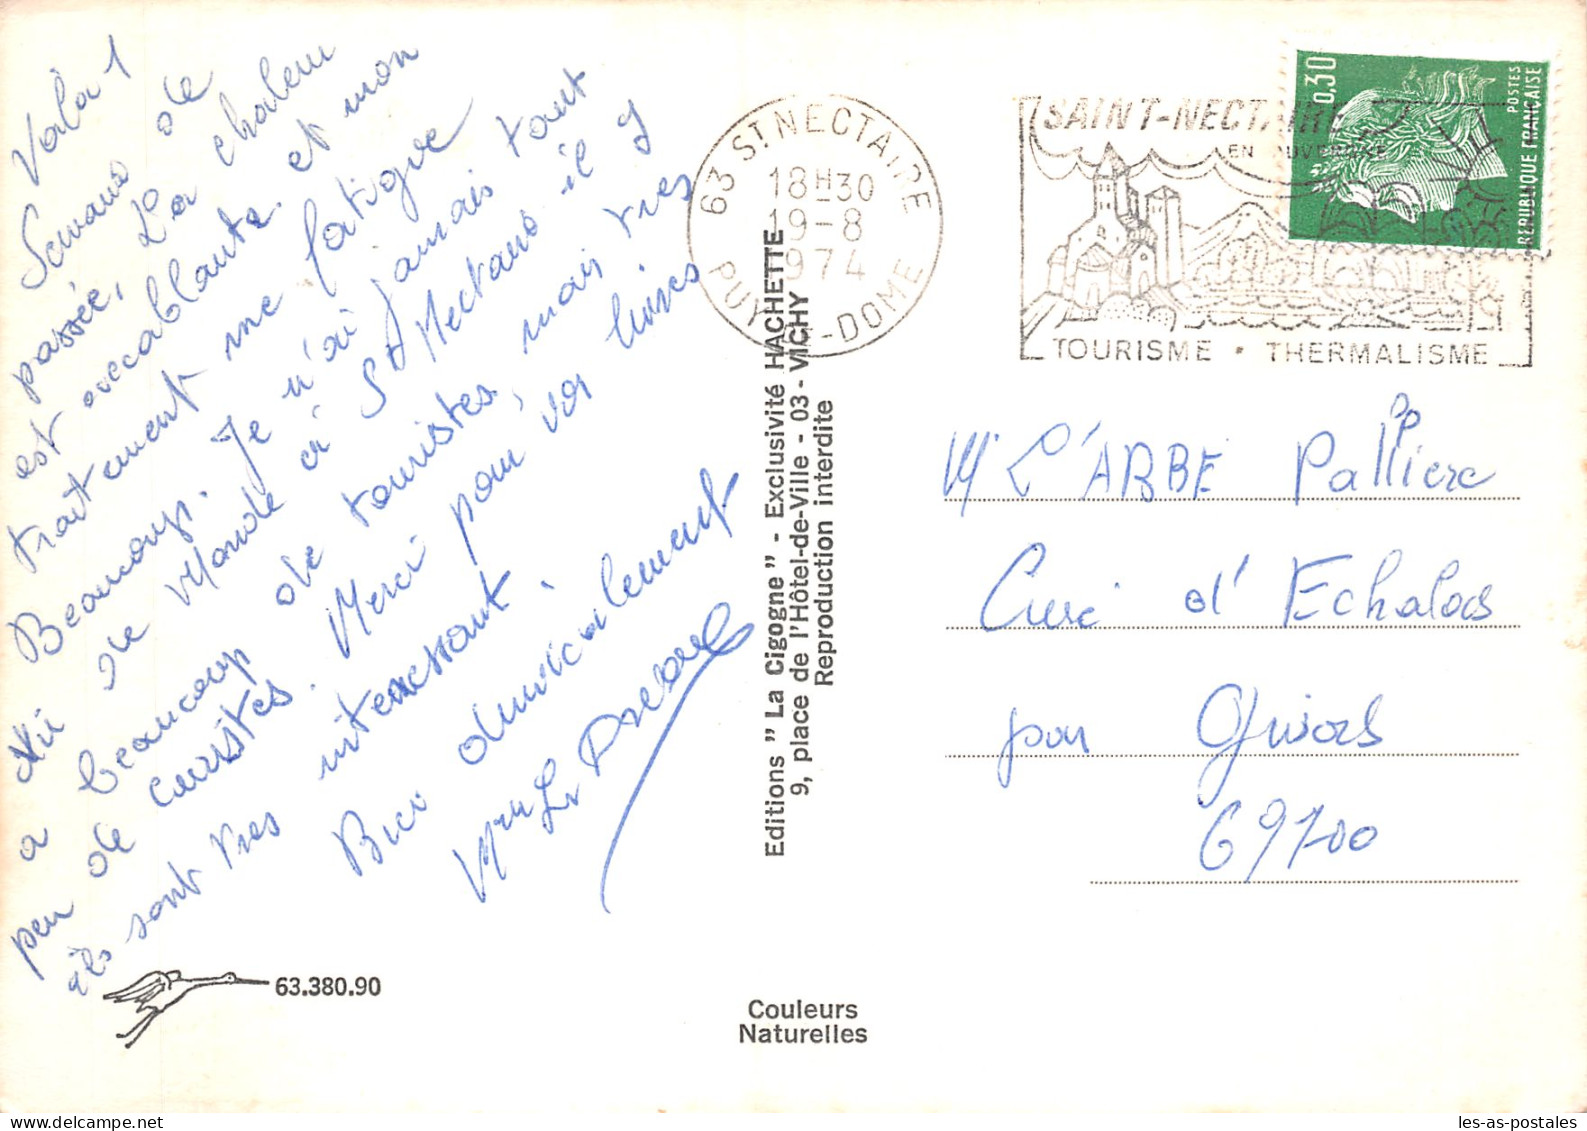 Voila 1
Semaine de
passée, La chaleur
est accablante. et mon
traitement me fatigue
Beaucoup. Je n'ai jamais tant
vu de Monde à St Nectaire il y
a beaucoup de touristes, mais tres
peu de curistes. Merci pour vos livres
ils sont tres interessant.
Bien Amicalement
Mme
63.380.90
Couleurs
Naturelles
Editions "La Cigogne" - Exclusivité HACHETTE
9, place de l'Hôtel-de-Ville - 03 - VICHY
Reproduction interdite
63 ST NECTAIRE
18H30
19-8
1974
PUY-DE-DOME
SAINT-NECTAIRE
EN AUVERGNE
TOURISME • THERMALISME
0,30
POSTES
REPUBLIQUE FRANÇAISE
M L'ABBE Palliere
Curé d'Echalas
par Givors
69700
les-as-postales